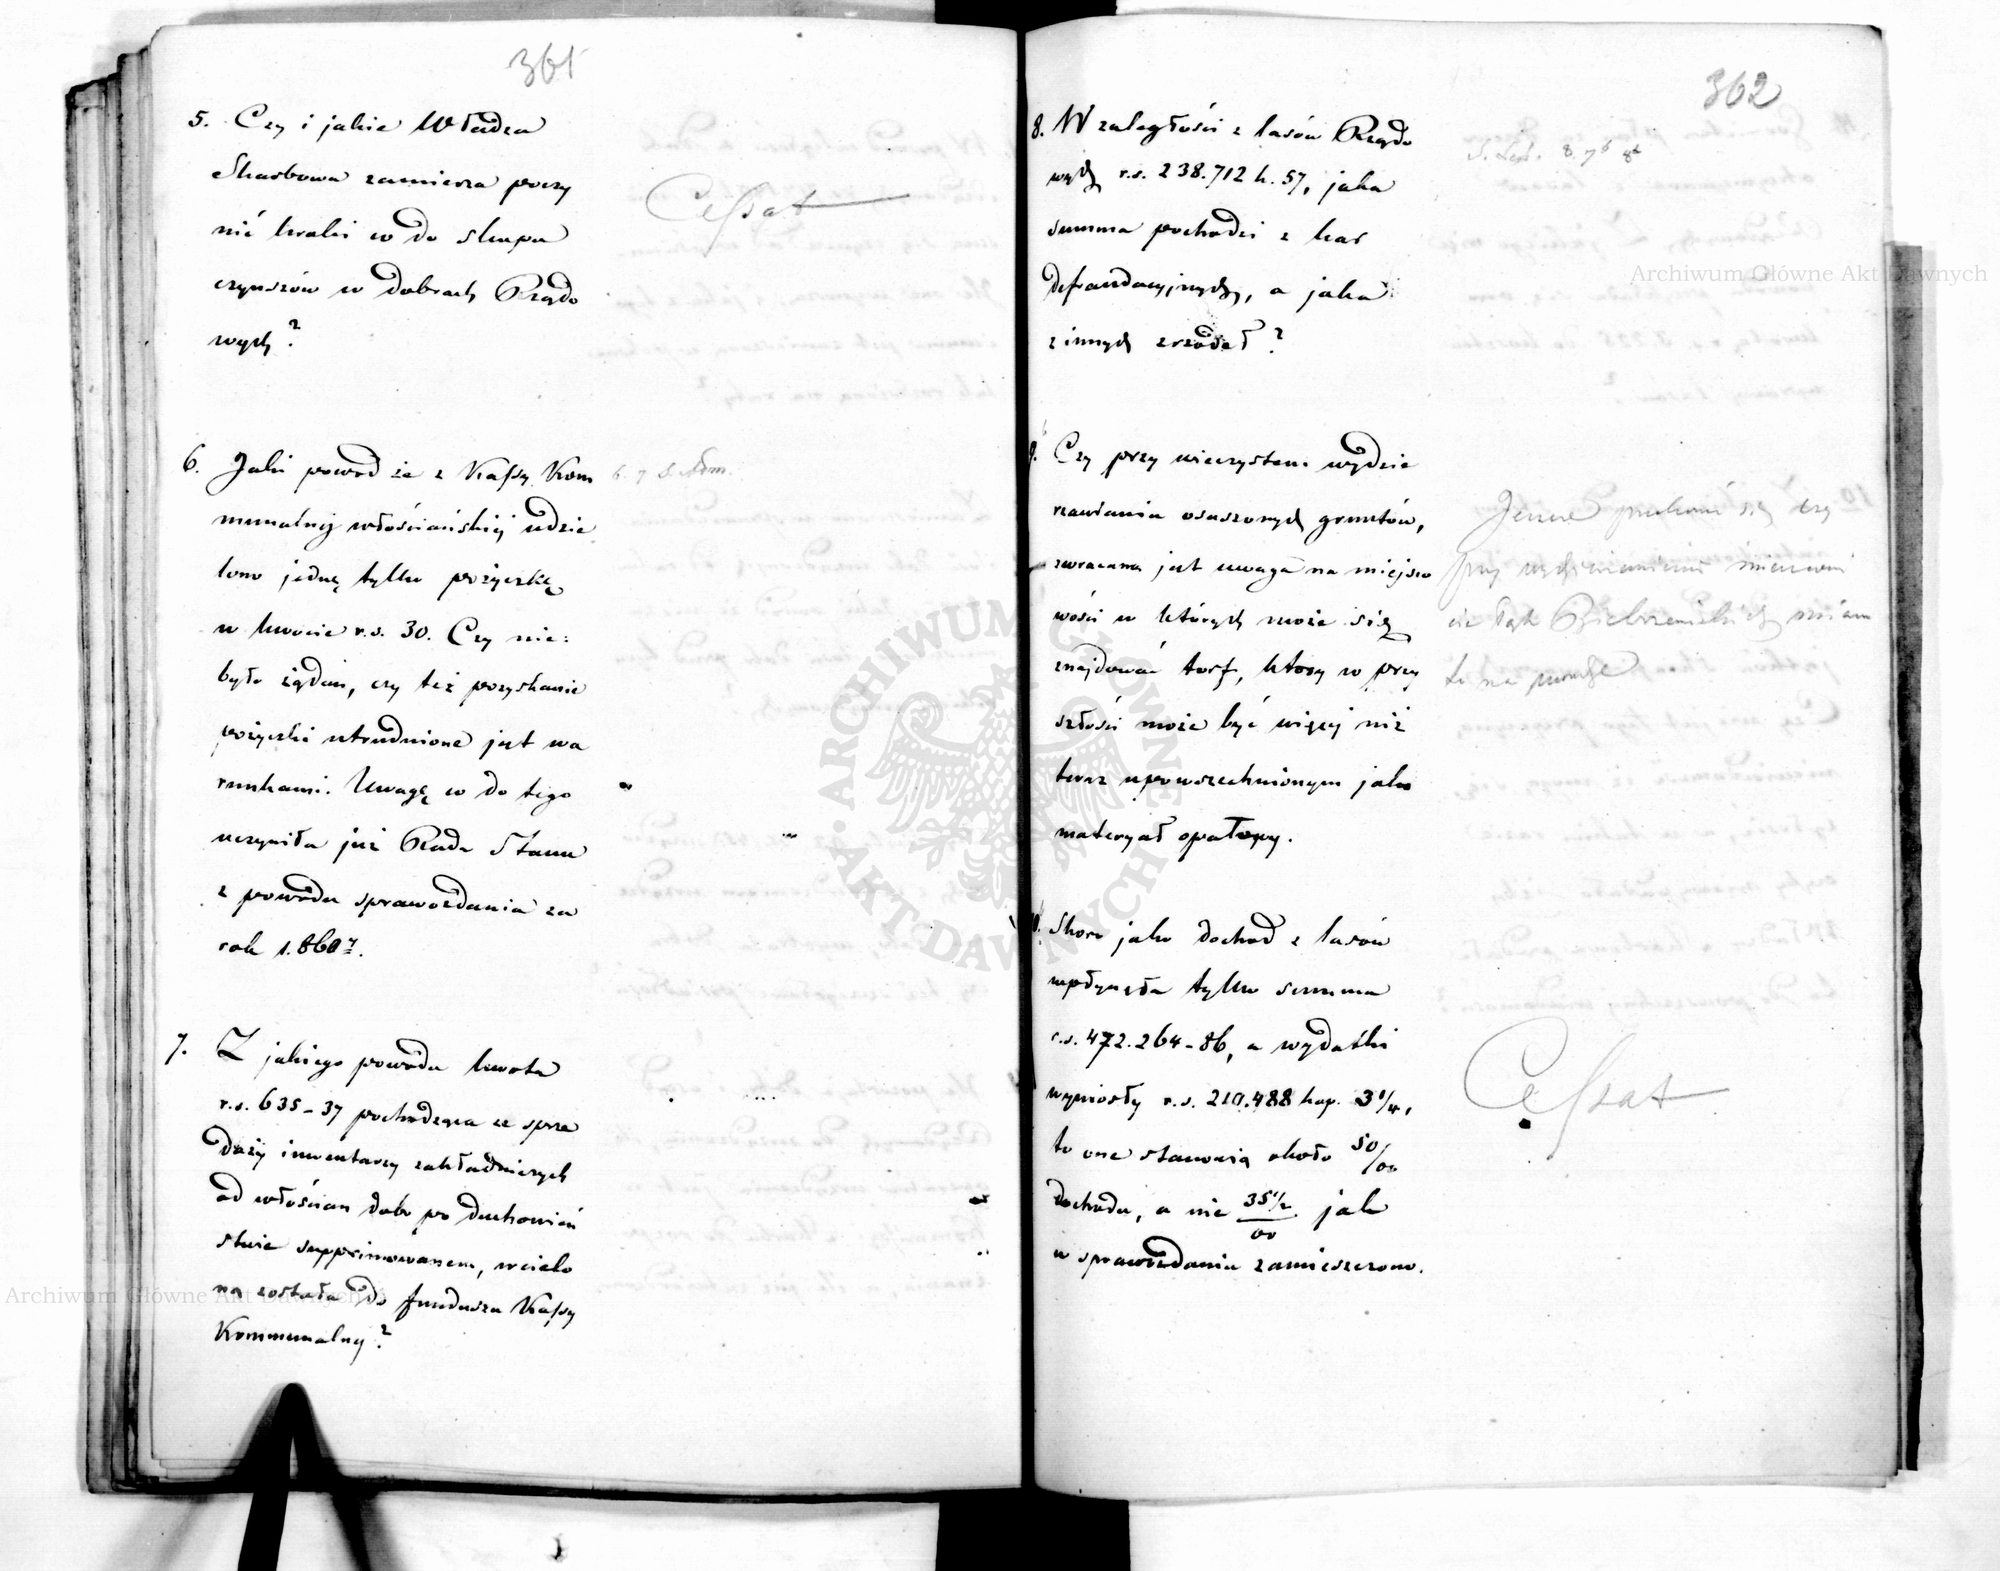 361
5. Czy i jakie Władza
Skarbowa zamierza poczy
nić kroki co do skupu
czynszów w dobrach Rządo
wych?
Cessat
6. Jaki powód że z Kassy Kom
munalnej włościańskiej udzie
lono jedną tylko pożyczkę
w kwocie r.s. 30. Czy nie=
było żądań, czy też pozyskanie
pożyczki utrudnione jest wa
runkami. Uwagę co do tego
uczyniła już Rada Stanu
z powodu sprawozdania za
rok 1.860
6. 7 S. Adm.
7. Z jakiego powodu kwota
r.s. 635-37 pochodząca ze sprze
daży inwentarzy zakładniczych
od włościan dóbr po duchowień
stwie supprimowanem, wcielo
ną została do funduszu Kassy
Kommunalnej?
362
8. W zaległości z lasów Rządo
wych r.s. 238.712 k. 57, jaka
summa pochodzi z kar
defraudacyjnych, a jaka
z innych zrzódeł?
9. Czy przy wieczystem wydzie
rzawianiu osuszonych gruntów,
zwracana jest uwaga na miejsco
wości w których może się
znajdować torf, który w przy
szłości może być więcej niż
teraz upowszechnionym jako
materyał opałowy.
10. Skoro jako dochod z lasów
wpłynęła tylko summa
r.s. 472.264-86, a wydatki
wyniosły r.s. 210.488 kop. 3 1/4,
to one stanowią około 50/00
dochodu, a nie 35 1/2/00 jak
w sprawozdaniu zamieszczono.
Cessat
Archiwum Główne Akt Dawnych
Archiwum Główne Akt Dawnych
ARCHIWUM GŁÓWNE AKT DAWNYCH